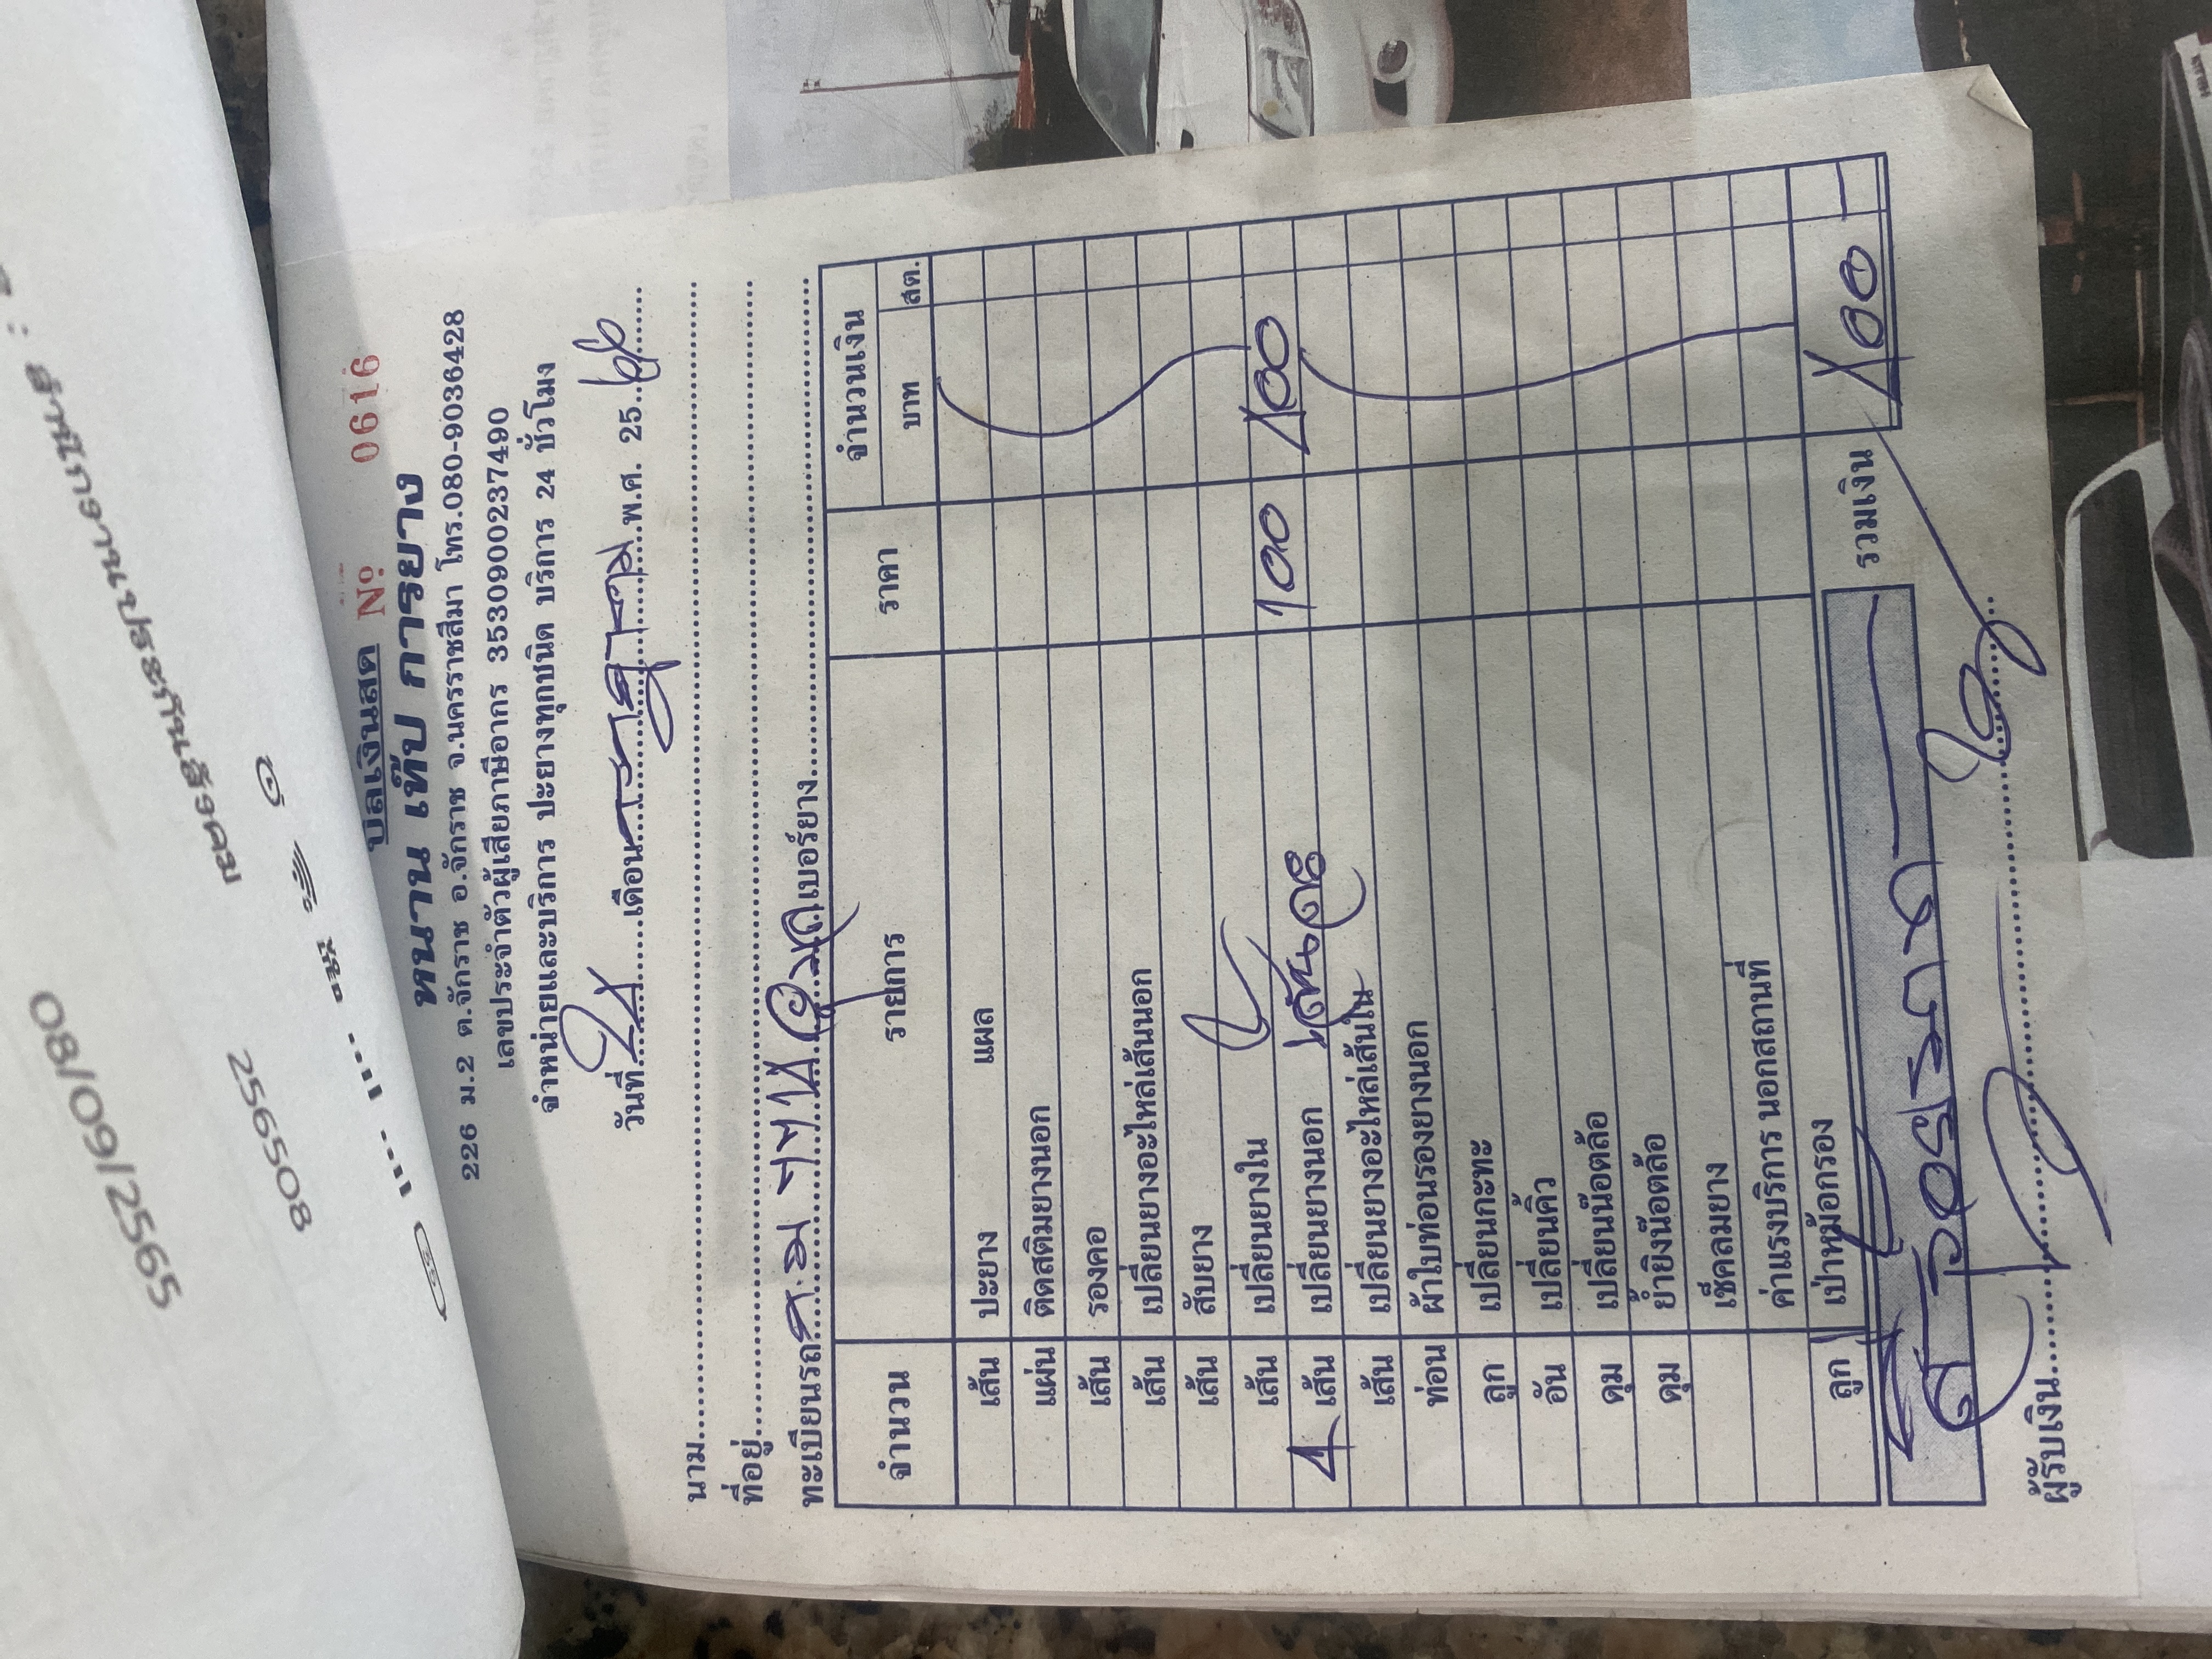 08/09/2565
256508
คณะครูผู้สอนปฏิบัติงาน
บิลเงินสด № 0616
หนาน เท๊ป การยาง
226 ม.2 ต.จักราช อ.จักราช จ.นครราชสีมา โทร.080-9036428
เลขประจำตัวผู้เสียภาษีอากร 3530900237490
จำหน่ายและบริการ ปะยางทุกชนิด บริการ 24 ชั่วโมง
วันที่ เดือน กรกฎาคม พ.ศ. 25 66
นาม
ที่อยู่
ทะเบียนรถ เบอร์ยาง
จำนวน รายการ ราคา จำนวนเงิน
บาท สต.
เส้น ปะยาง แผล
แผ่น ติดสติมยางนอก
เส้น รองคอ
เส้น เปลี่ยนยางอะไหล่เส้นนอก
เส้น สับยาง
เส้น เปลี่ยนยางใน
1 เส้น เปลี่ยนยางนอก เส้นละ 100 100
เส้น เปลี่ยนยางอะไหล่เส้นใน
ท่อน ผ้าใบท่อนรองยางนอก
ลูก เปลี่ยนกะทะ
อัน เปลี่ยนคิว
ดุม เปลี่ยนน๊อตล้อ
ดุม ย้ำยิงน๊อตล้อ
เช็คลมยาง
ค่าแรงบริการ นอกสถานที่
ลูก เป่าหม้อกรอง
หนึ่งร้อยบาท รวมเงิน 100 -
ผู้รับเงิน